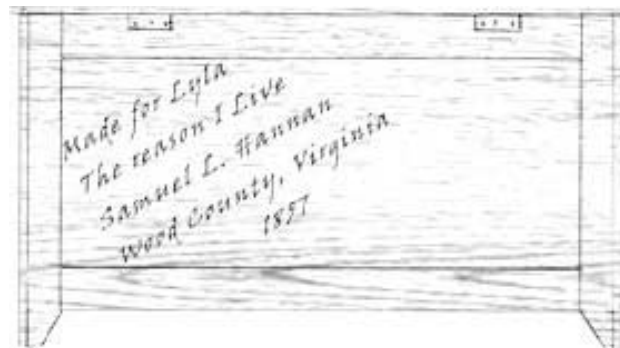 Made for Lyla
The reason I Live
Samuel L. Hannan
Wood County, Virginia
1857